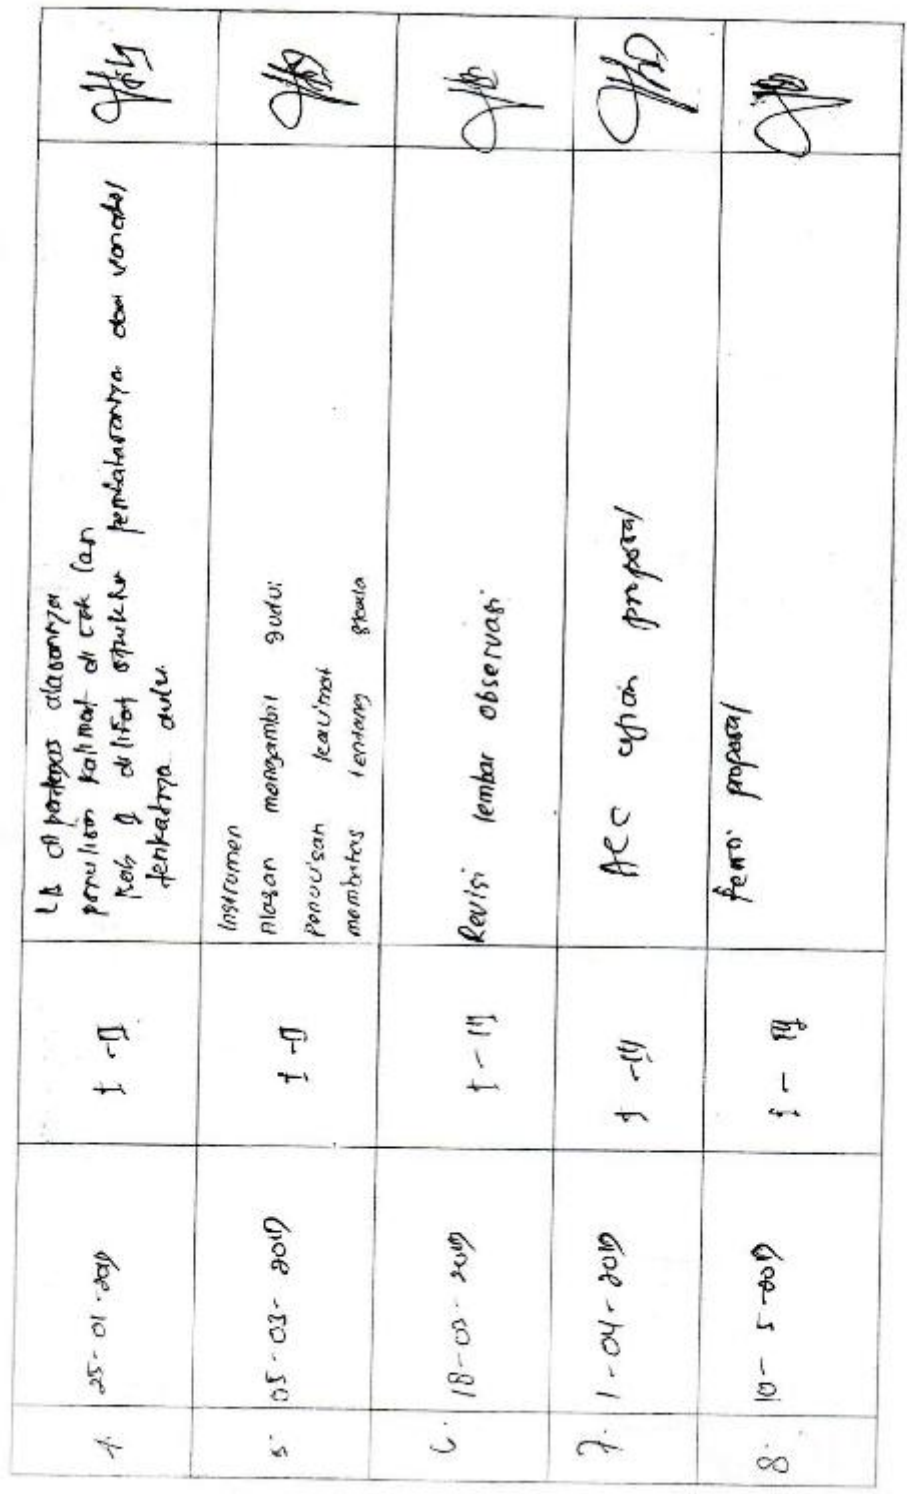 4. 25-01-2019 I - II
LB dipertegas alasannya
penulisan kalimat di cek lagi
Bab II dilihat struktur pembahasannya dan variabel
terikatnya dulu.
5. 05-03-2019 I - II
Instrumen
Alasan mengambil
Penulisan kalimat
membahas tentang skala
6. 18-03-2019 I - III
Revisi lembar observasi
7. 1-04-2019 I - III
ACC ujian proposal
8. 10-5-2019 I - III
Revisi proposal